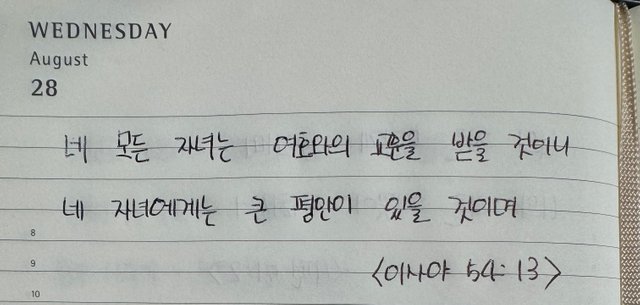 WEDNESDAY
August
28
네 모든 자녀는 여호와의 교훈을 받을 것이니
네 자녀에게는 큰 평안이 있을 것이며
8
9
<이사야 54:13>
10